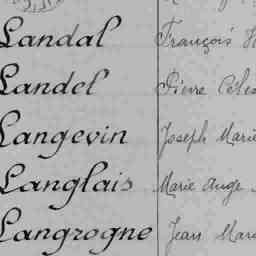 Landal François
Landel Pierre
Langevin Joseph Marie
Langlais Marie Ange
Langrogne Jean Marie